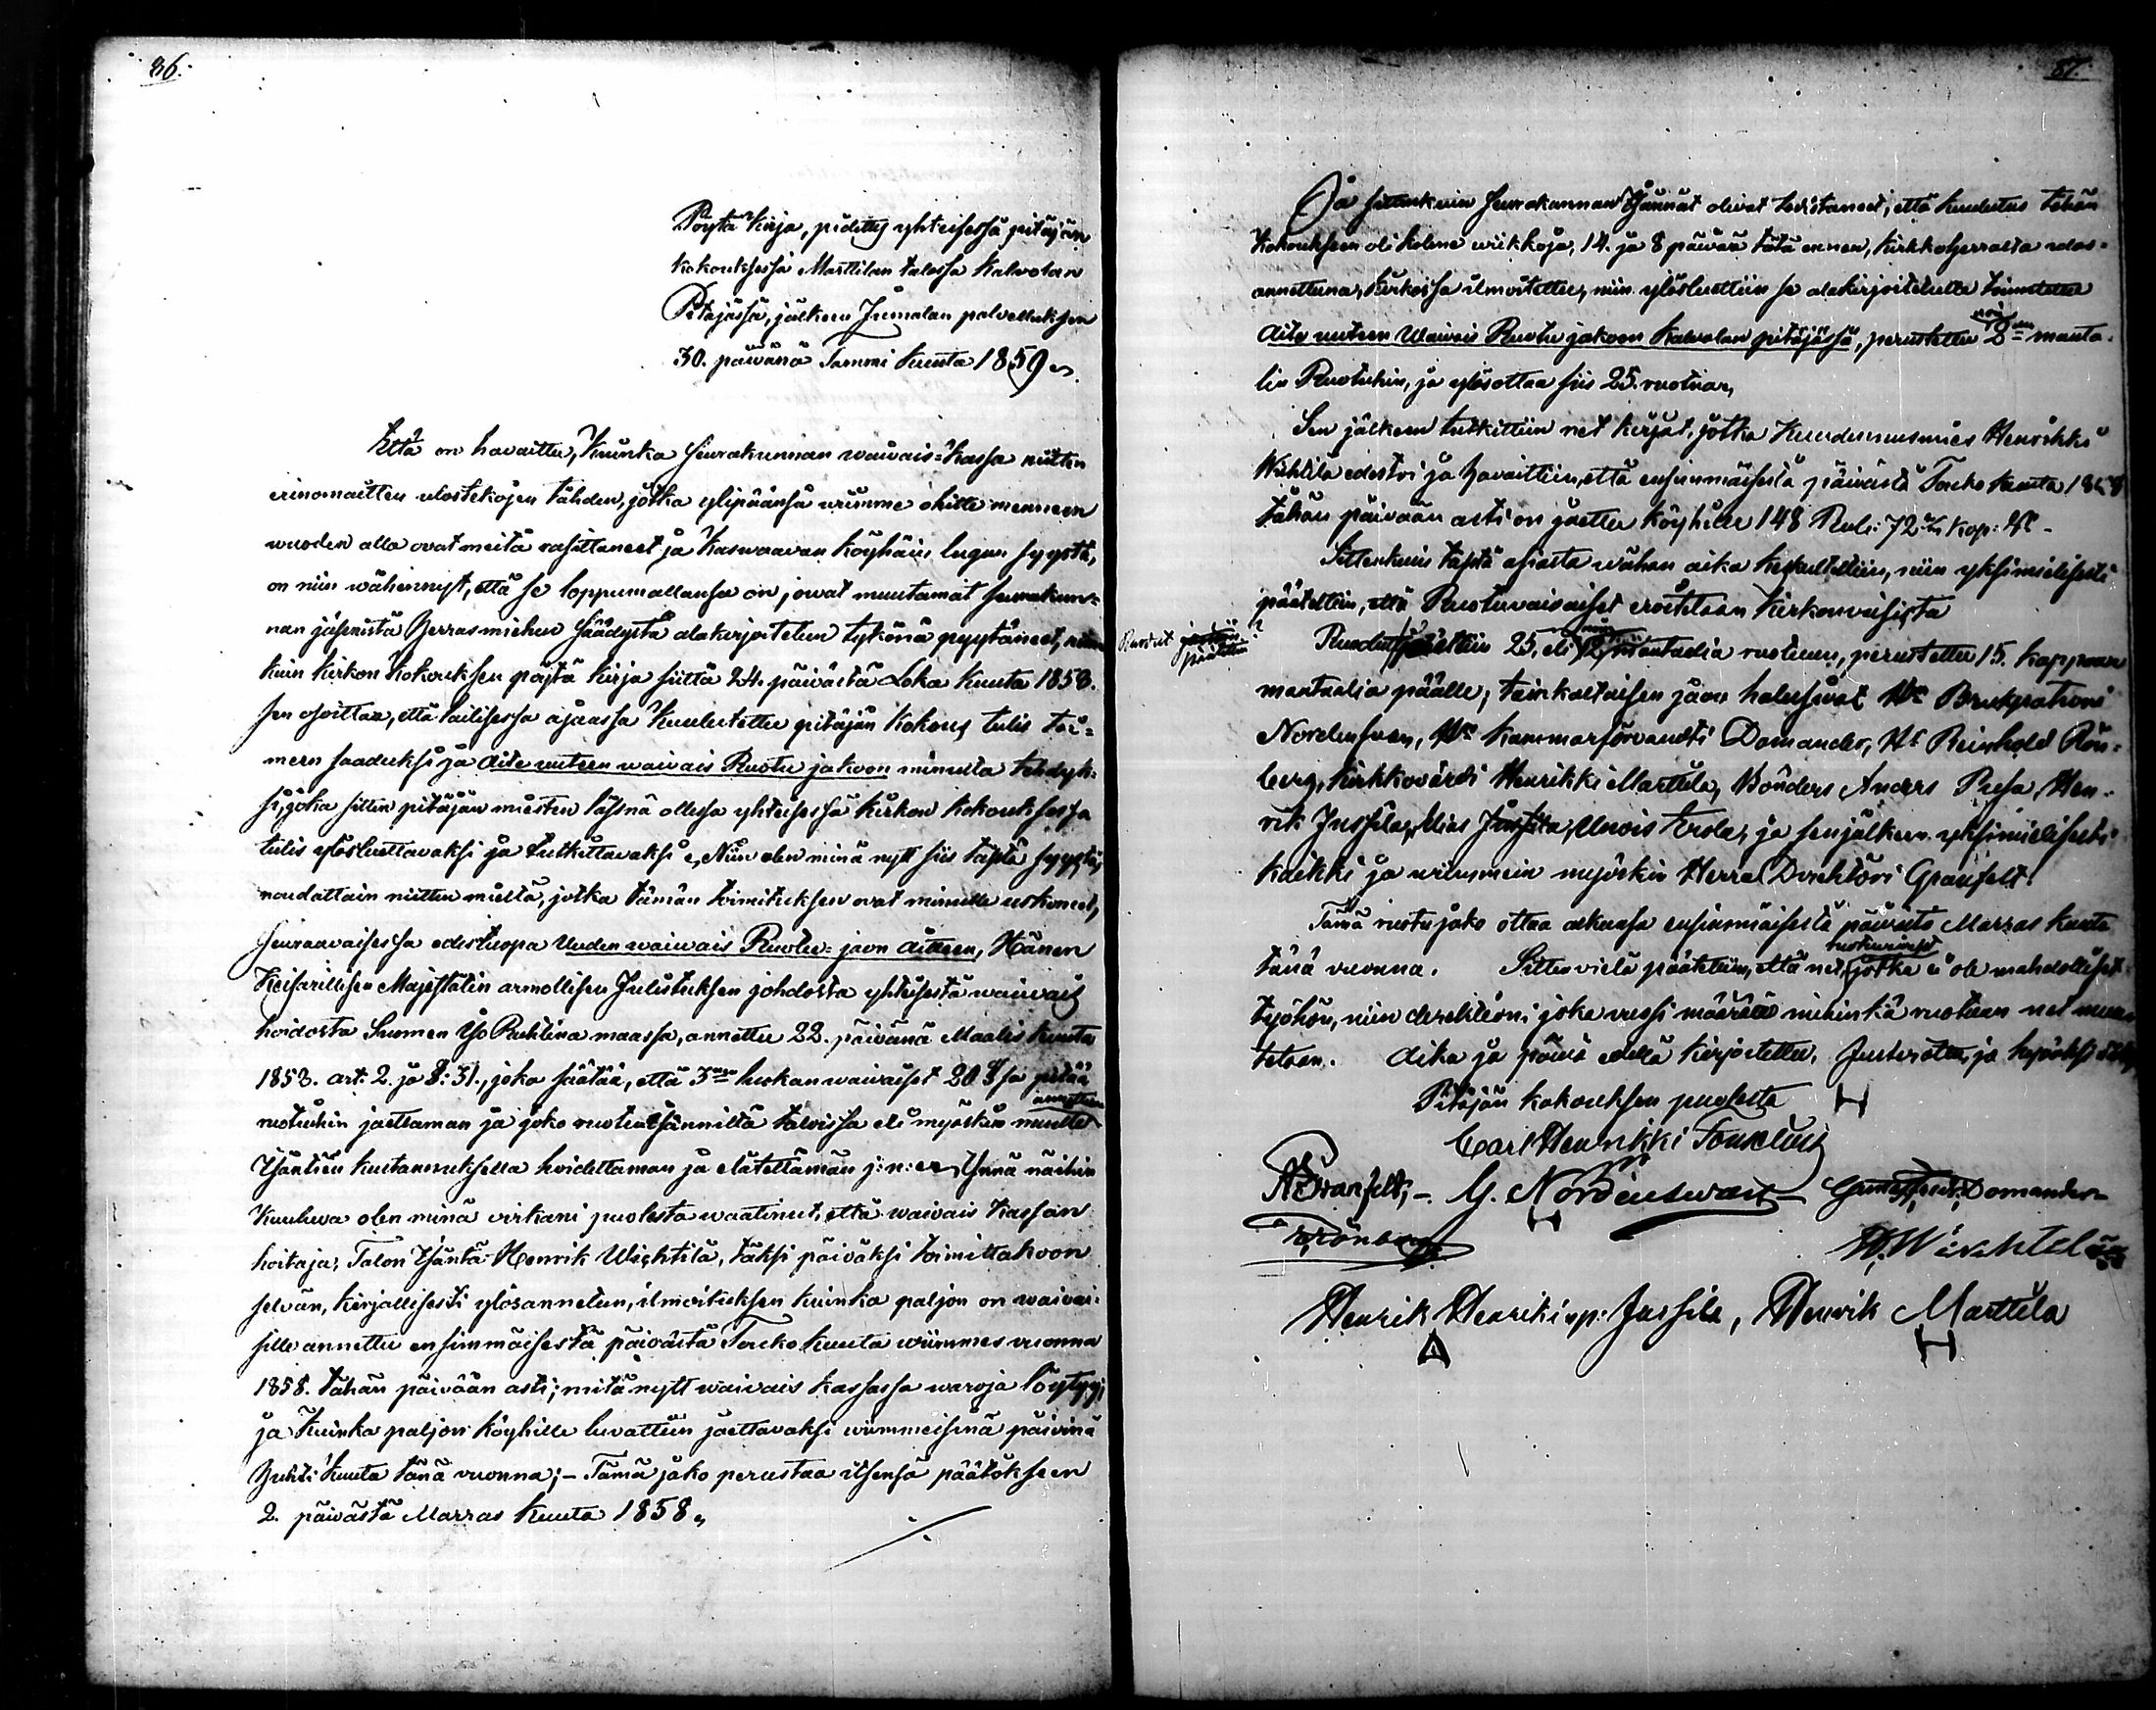 86.
Pöytä Kirja, pidetty yhteisessä pitäjän
kokouksessa Marttilan talossa Kalvolan
Pitäjässä, jälkeen Jumalan palveluksen
30. päivänä Tammi kuuta 1859.
Että on havaittu, Kuinka seurakunnan waiwais-Kassa niitten
erinomaitten ulostekojen tähden, jotka ylipäänsä wiimme ohitte menneen
wuoden alla ovat meitä rasittaneet ja Kaswaavan köyhäin lugun syystä,
on niin wähennyt, että se loppumallansa on jowat muutamat seurakun-
nan jäsenistä Herrasmiehen säädystä alakirjoitetun tykönä pyytäneet, niin
kuin kirkon Kokouksen pöytä kirja siittä 24. päivästä Loka kuuta 1858.
sen osoittaa, että lailisessa ajassa Kuulutettu pitäjän Kokous tulis toi-
meen saaduksi ja Aite uuteen waiwais Ruotu jakoon minulta tehdyk-
si, joka sitten pitäjän miesten läsnä ollessa yhteisessä kirkon kokouksessa
tulis ylösluettavaksi ja tutkittavaksi, Niin olen minä nyt siis tästä syystä,
noudattain niitten mieltä, jotka tämän toimituksen ovat minulle uskoneet,
seuraavaisessa edestuopa Uuden waiwais Ruotu-jaon Aitteen, Hänen
Keisarillisen Majestätin armollisen Julistuksen johdosta yhteisestä waiwais
hoidosta Suomen Iso Ruhtina maassa, annettu 22. päivänä Maalis kuuta
1852. art: 2. ja §: 31., joka säätää, että 3men luokan waiwaiset 20 §ssa pitää
annettun
ruotuihin jaettaman ja joko ruotu Isänniltä talvissa eli myöskin muilla
Isäntien kustannuksella hoidettaman ja elätettämän j: n: e. Ynnä näihin
Kuuluva olen minä virkani puolesta waatinut, että waivais Kassan
hoitaja, Talon Isäntä Henrik Wächtilä, täksi päiväksi toimittakoon
selvän, kirjallisesti ylösannetun, ilmoituksen kuinka paljon on waiwai-
sille annettu ensimmäisestä päivästä Touko kuuta wiimmes vuonna
1858. tähän päivään asti; mitä nytt waivais kassassa waroja löytyy,
ja Kuinka paljon köyhille luvattiin jaettavaksi wiimmeisinä päivinä
Huhti Kuuta tänä vuonna; – Tämä jako perustaa itsensä päätökseen
2. päivästä Marras kuuta 1858.
87.
Ja sittenkuin seurakunnan Isännät olivat todistaneet, että kuulutus tähän
Kokoukseen oli kolme wiikkoja, 14. ja 8 päivää tätä ennen, kirkkoherralta ulos-
annettuna, kirkossa ilmoitettu, niin ylösluettiin se alakirjoitetulta toimitettu
Aite uuteen Waivais Ruotu jakoon Kalvolan pitäjässä, perustettu 2 manta-
lin Ruotuhin, ja ylösottaa siis 25. ruotua,
Sen jälkeen tutkittiin net kirjat, jotka Kuudennusmies Henrikki
Wähtilä edestoi ja havaittiin, että ensimmäisestä päivästä Touko kuuta 1858
tähän päivään asti on jaettu köyhille 148 Rub: 72 kop: –
Sittenkuin tästä asiasta wähän aika keskusteltiin, niin yksimielisesti
päätettiin, että Ruotuvaivaiset eroitetaan Kirkonvaivasista
Ruodut jaetiin
päätettiin
25, eli mantaalia ruotuun, perustettu 15. kappaan
mantaalia päälle, tainkaltaisen jaon halusivat Hr Brukspatroni
Nordensvan, Hr Kammarförvandti Domander, Hr Reinhold Rön-
berg, kirkkovärdi Henrikki Marttila, Bönders Anders Pusa, Hen-
rik Jussila, Elias Jussila, Unois Erola, ja senjälkeen yksimielisesti
kaikki ja wiimmein myöskin Herra Direktöri Granfelt.
Tämä ruotu jako ottaa alkunsa ensimmäisestä päivästä Marras kuuta
tänä vuonna. Sitten vielä päätettiin, että net, jotka ei ole mahdolliset
työhön, niin direktioni joka vuosi määrää mihinkä ruotuun net
tetaan. Aika ja päivä edellä kirjoitettu. Justerattu, ja hyväksi
Pitäjän kokouksen puolesta
Carl Henrikki Fonselius
A Granfelt, – G. Nordenswan Domander
Rönberg H. Wächtilä
Henrik Henrikinp: Jussila, Henrik Marttila